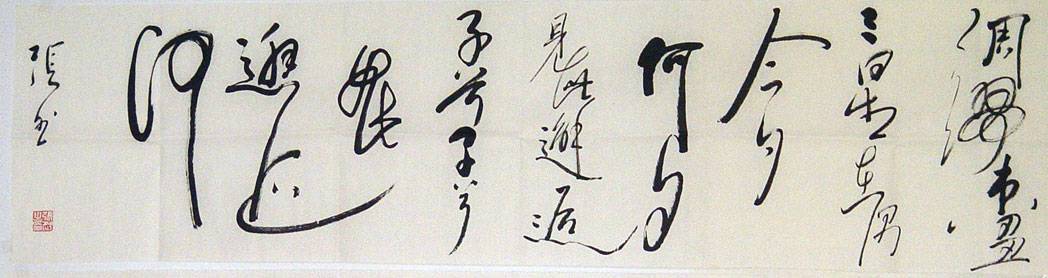 綢繆束芻
三星在隅
今夕
何夕
見此邂逅
子兮子兮
如此
邂逅
何
張